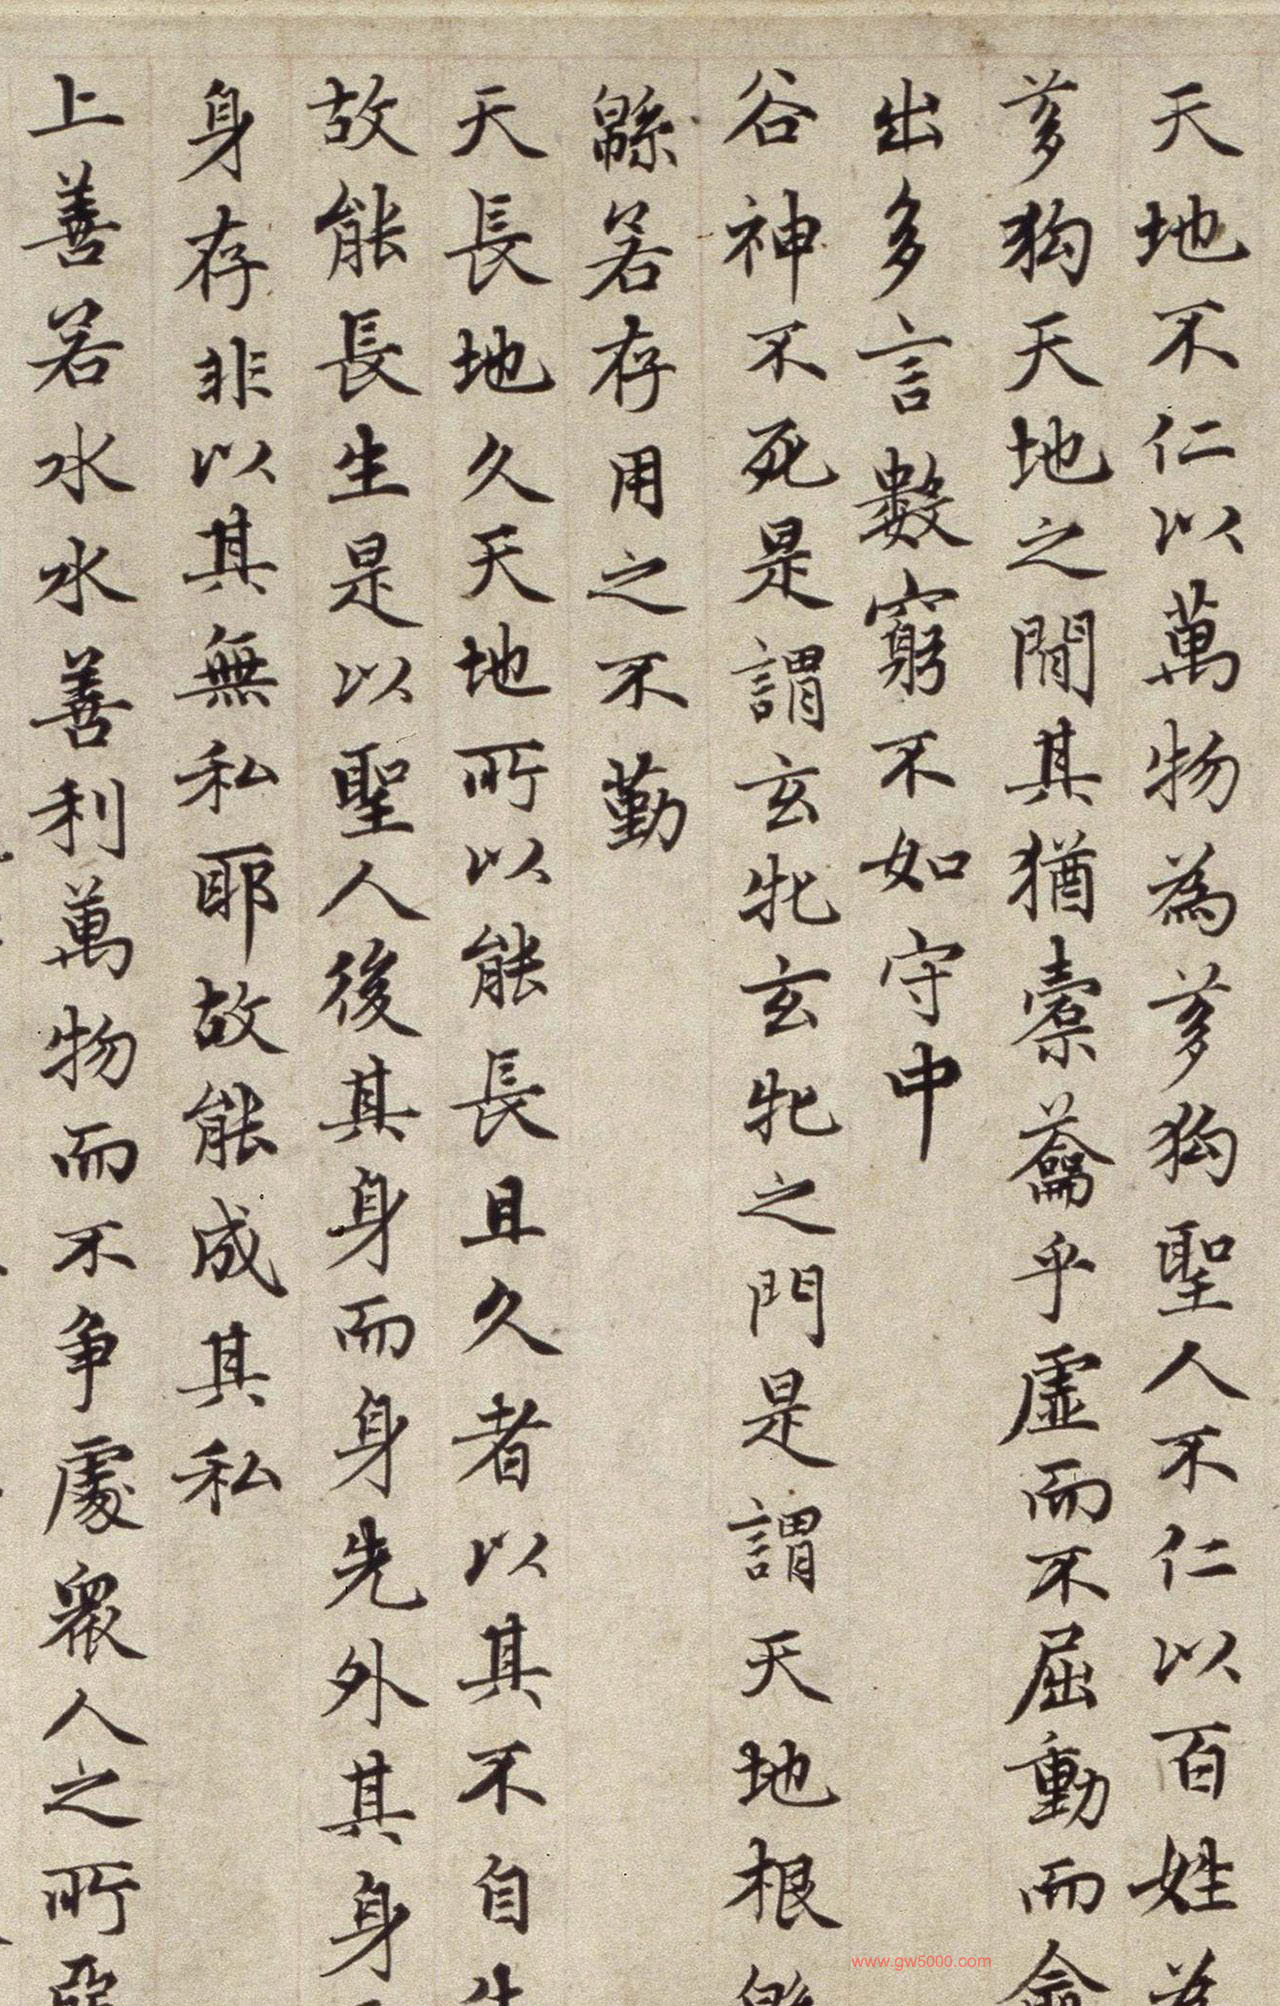 天地不仁以萬物為芻狗聖人不仁以百姓為
芻狗天地之間其猶橐籥乎虛而不屈動而俞
出多言數窮不如守中
谷神不死是謂玄牝玄牝之門是謂天地根緜
緜若存用之不勤
天長地久天地所以能長且久者以其不自生
故能長生是以聖人後其身而身先外其身
身存非以其無私耶故能成其私
上善若水水善利萬物而不争處衆人之所惡
www.gw5000.com